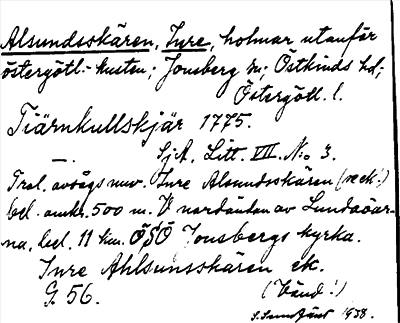 Alsundsskären, Inre, holmar utanför
östergötl.-kusten; Jonsberg sn; Östkinds hd;
Östergötl. l.
Tiärnkullskjär 1775.
— . SjA, Litt. VIII. N:o 3.
Trol. avsågs nuv. Inre Alsundsskären (ve ek.!)
bel. omkr. 500 m. V nordändan av Lundaöar-
na, bel. 11 km. ÖSÖ Jonsbergs kyrka.
Inre Ahlsunsskären ek.
G. 56. (Vänd!)
1938.